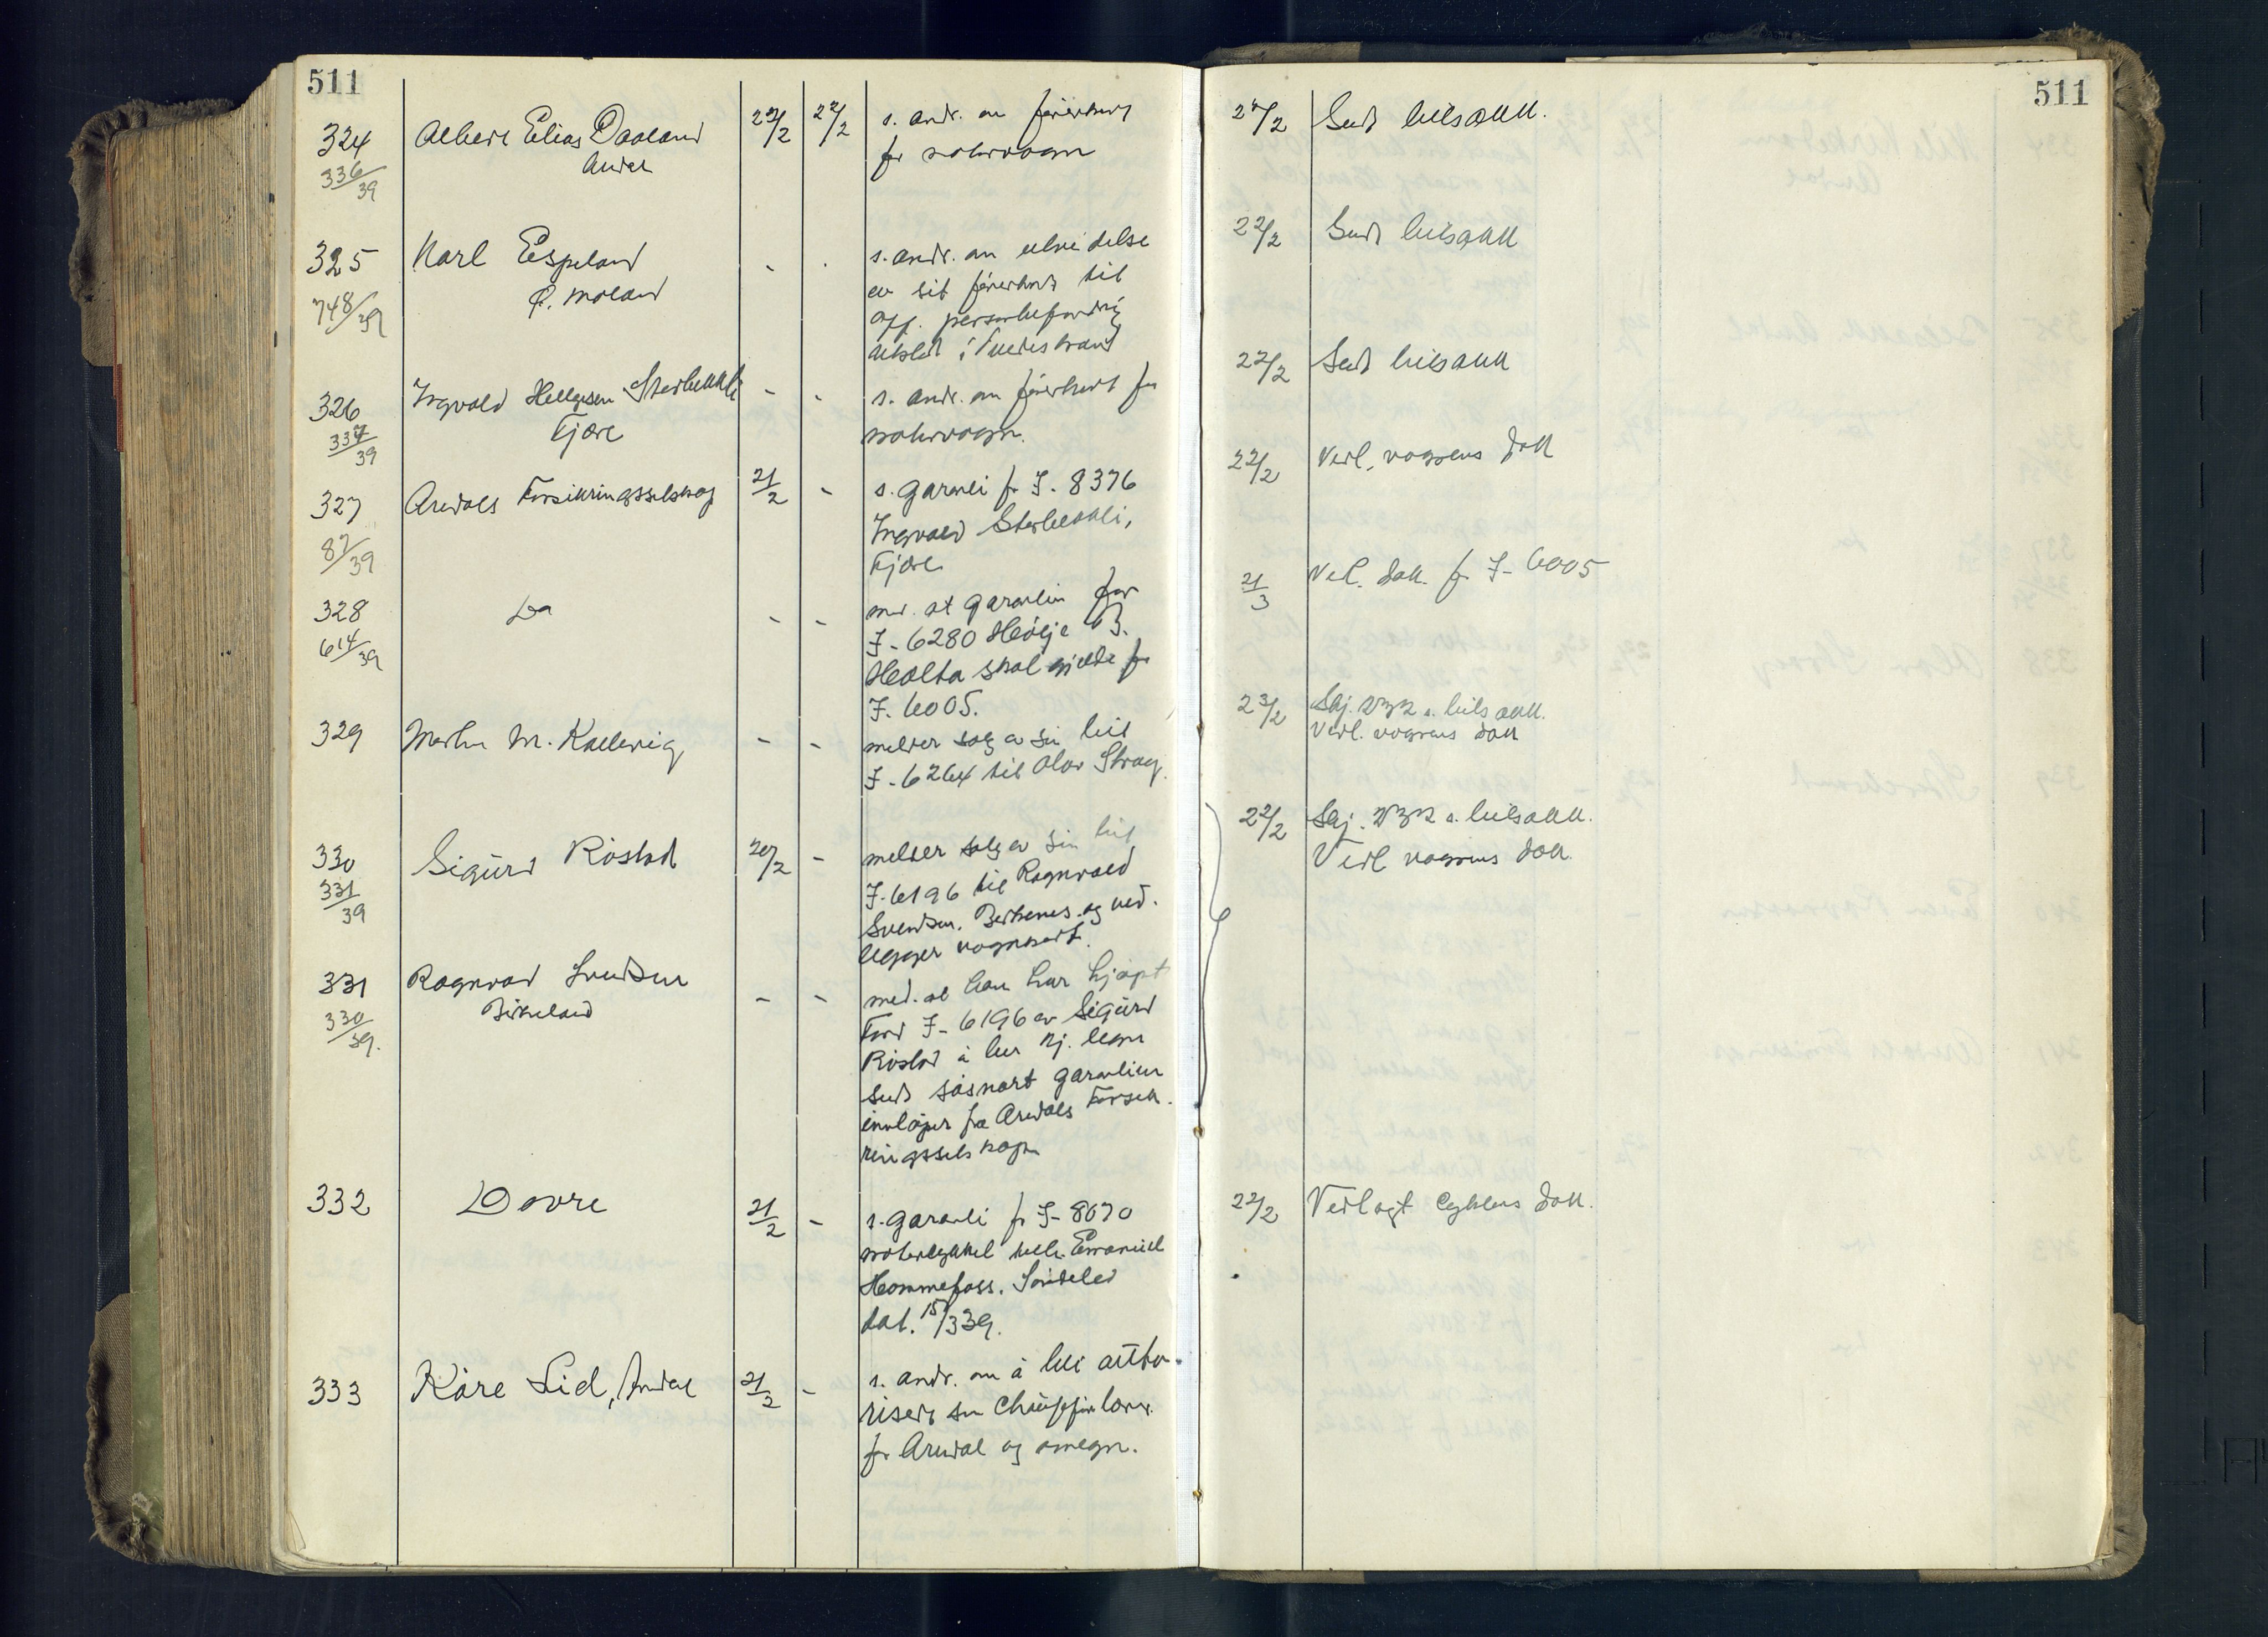 511
324
336/39
Albert Elias Daaland
Arendal
22/2
22/2
s. andr. om førerkort
for motorvogn
325
748/39
Karl Espeland
Ø. Moland
-
-
s. andr. om utvidelse
av sit førerkort til
off. personbefordring
utsted i Tvedestrand
326
337/39
Ingvald Hellgesen Størbukkli
Fjære
-
-
s. andr. om førerkort for
motorvogn.
327
87/39
Arendals Forsikringsselskap
21/2
-
s. garanti for I-8376
Ingvald
Fjære
328
614/39
Do
-
-
med. at garantien for
I-6280 Helje B.
Holta skal gjelde for
I-6005.
329
M. Kallevig
-
-
melder salg av sin bil
I-6264 til Olav Stray.
330
331/39
Sigurd Röstad
20/2
-
melder salg av sin bil
I-6196 til Ragnvald
Svendsen, Birkenes og ved-
legger vognkort.
331
330/39.
Ragnvald Svendsen
Birkeland
-
-
med. at han har kjøpt
Ford I-6196 av Sigurd
Röstad å ber kj. legen
sendt såsnart garantien
innløper fra Arendals Forsik-
ringsselskap
332
Dovre
21/2
-
s. garanti for I-8070
motorcykkel tilh. Emanuel
Hommefoss, Söndeled
dat. 15/3 39.
333
Kåre Lid, Arendal
21/2
-
s. andr. om å bli autho-
risert som Chaufførlærer
for Arendal og omegn.
511
22/2
Sendt bilsakk.
22/2
Sendt bilsakk
22/2
Sendt bilsakk
22/2
Vedl. vognens dok
21/3
Vedl. dok. for I-6005
23/2
bilsakk.
Vedl. vognens dok
22/2
bilsakk.
Vedl vognens dok.
22/2
Vedlagt cyklens dok.